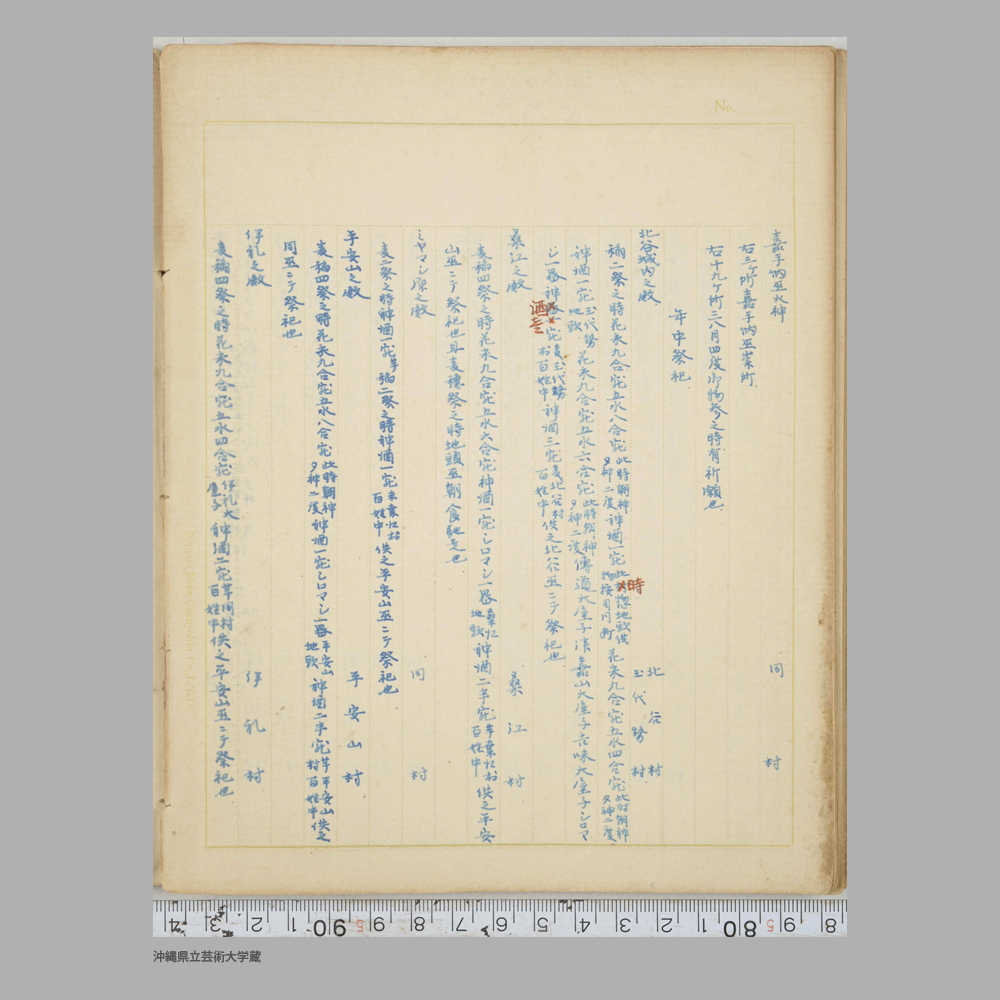 No.
嘉手納巫火神 同村
右三ケ所嘉手納巫崇所
右十九ケ所三八月四度御物参之時有祈願也
年中祭祀
北谷城内之殿 北谷村 玉代勢村
稲二祭之時花米九合宛五水八合宛此時朝神夕神二度神酒一宛此時惣地頭供物按司円所花米九合宛五水四合宛此時朝神夕神二度
神酒一宛玉代勢地頭花米九合宛五水六合宛此時朝神夕神二度傳道大屋子濱嘉山大屋子喜味大屋子シロマ
シ一器神酒壱宛麦玉代勢村百姓中神酒三宛麦北谷村百姓中供之北谷巫ニテ祭祀也
桑江之殿 桑江村
麦稲四祭之時花米九合宛五水六合宛神酒一宛シロマシ一器桑江地頭神酒二半宛芋桑江村百姓中供之平安
山巫ニテ祭祀也且麦穂祭之時地頭巫朝食馳走也
ミヤマシ原之殿 同村
麦二祭之時神酒一宛芋稲二祭之時神酒一宛米桑江村百姓中供之平安山巫ニテ祭祀也
平安山之殿 平安山村
麦稲四祭之時花米九合宛五水八合宛此時朝神夕神二度神酒一宛シロマシ一器平安山地頭神酒二半宛芋平安山村百姓中供之
同巫ニテ祭祀也
伊礼之殿 伊礼村
麦稲四祭之時花米九合宛五水四合宛伊礼大屋子神酒二宛芋同村百姓中供之平安山巫ニテ祭祀也
沖縄県立芸術大学蔵